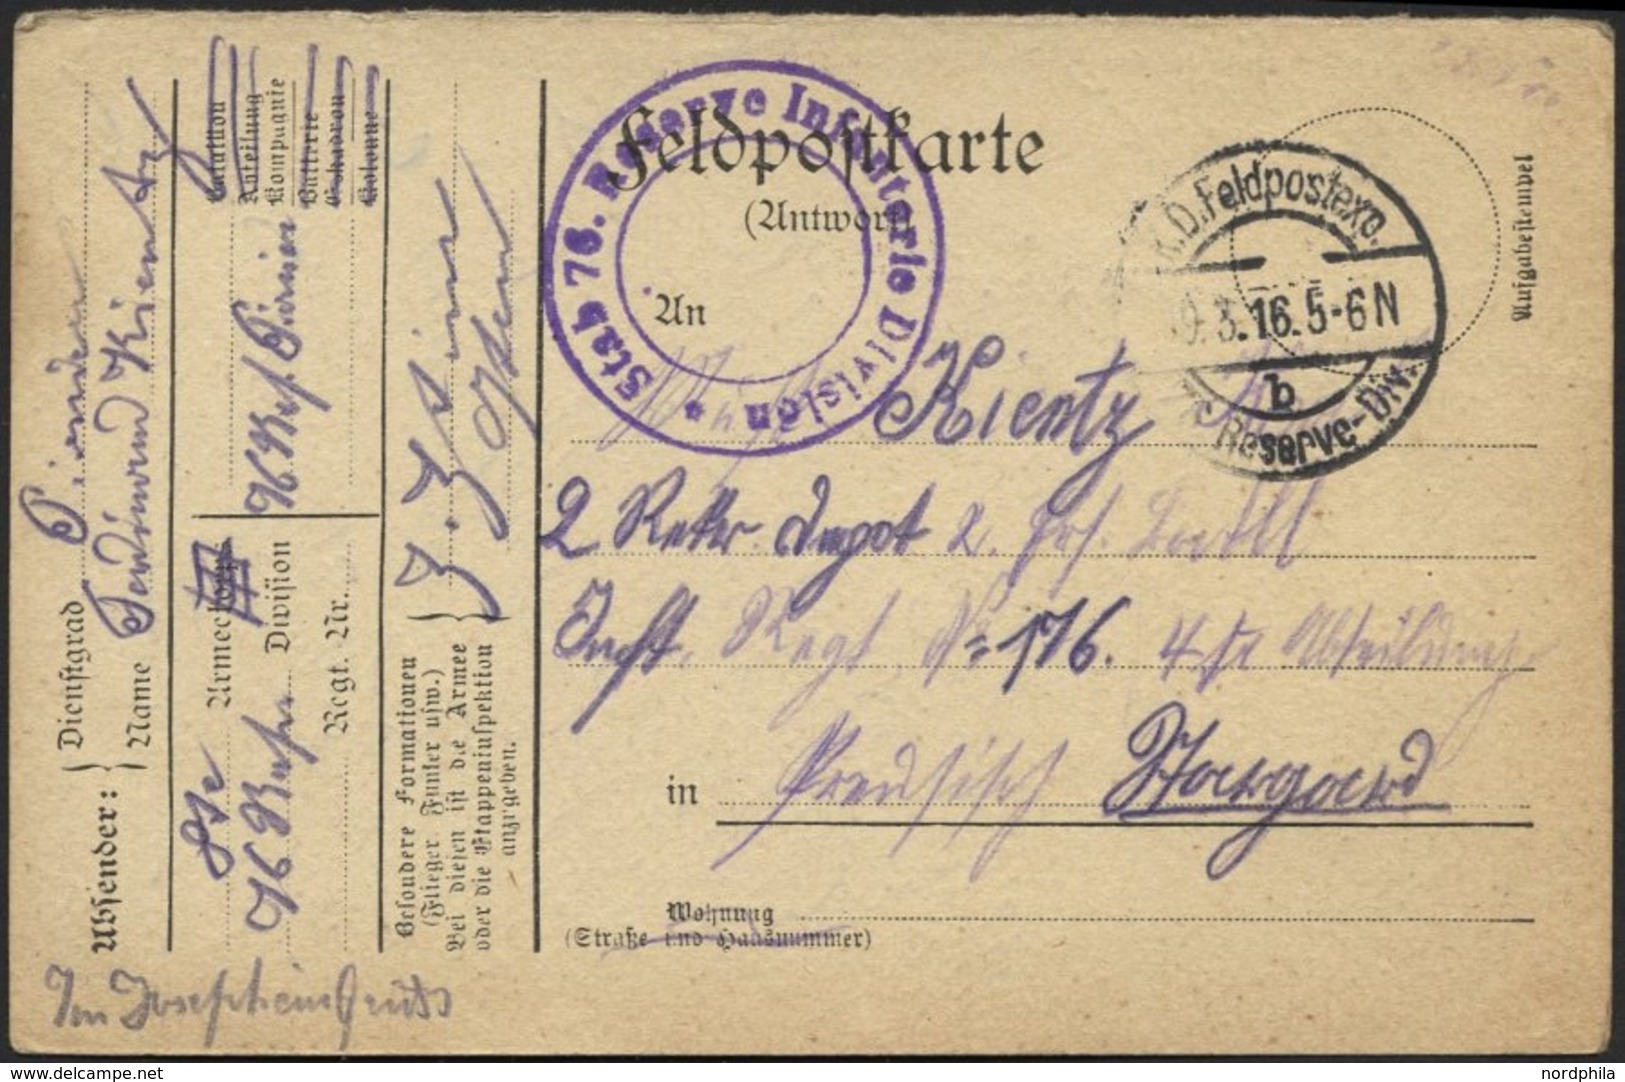 Feldpostkarte
(Antwort)
Stab 76. Reserve Infanterie Division *
K.D.Feldpostexp.
9.3.16.5-6N
b
Reserve-Div.
Aufgabestempel
An
Kientz
2 Rekr. Depot 2. Ers. Batll
Inft. Regt. No 176. 4te Abteilung
in Preusisch Stargard
Wohnung
(Straße und Hausnummer)
Absender:
Dienstgrad Pionier
Name Ferdinand Kientz
Armeekorps
76 Reserve Division
Regt. Nr.
Bataillon
Abteilung
Kompagnie
Batterie
Eskadron
Kolonne
76 Res. Pionier
Besondere Formationen
(Flieger Funker usw.)
Bei diesen ist die Armee
oder die Etappeninspektion
anzugeben.
Im